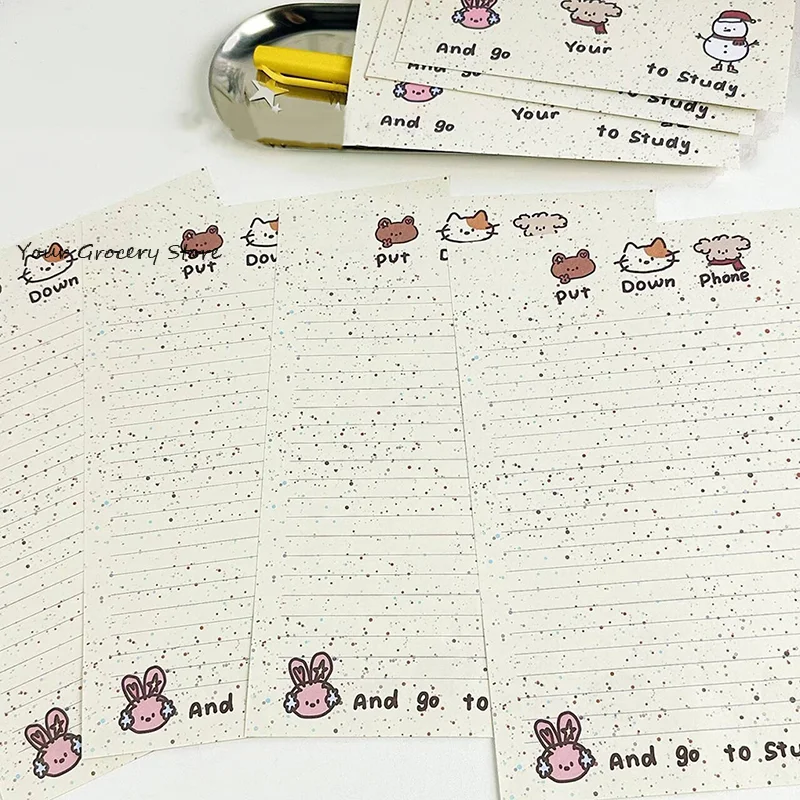 And go Your to Study.
And go to Study.
And go Your to Study.
Your Grocery Store
Down
Put
Put
Put Down Phone
And
And go to
And go to Stu